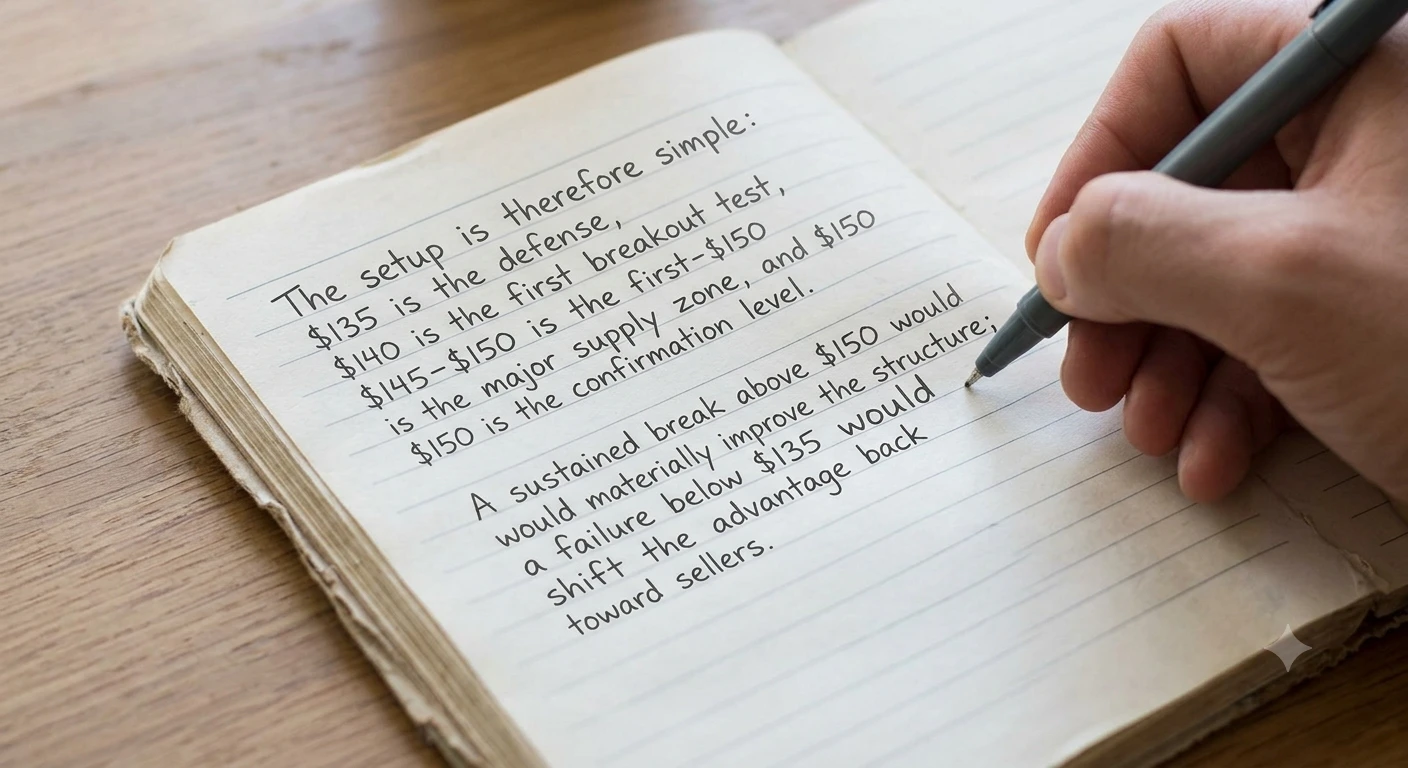 The setup is therefore simple:
$135 is the defense,
$140 is the first breakout test,
$145–$150 is the first-$150
is the major supply zone, and $150
$150 is the confirmation level.
A sustained break above $150 would
would materially improve the structure;
a failure below $135 would
shift the advantage back
toward sellers.